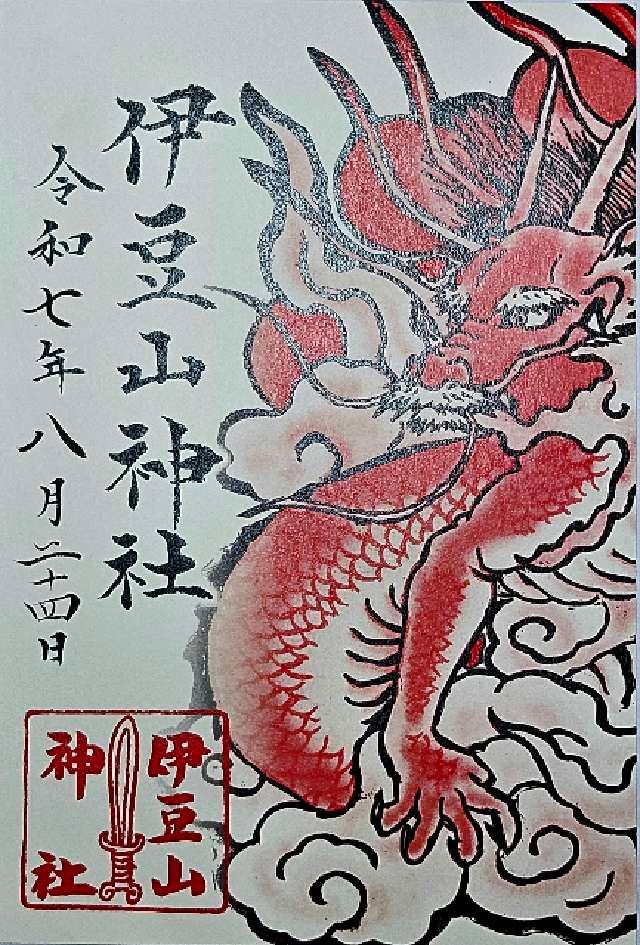 伊豆山神社
令和七年八月二十四日
伊豆山
神社